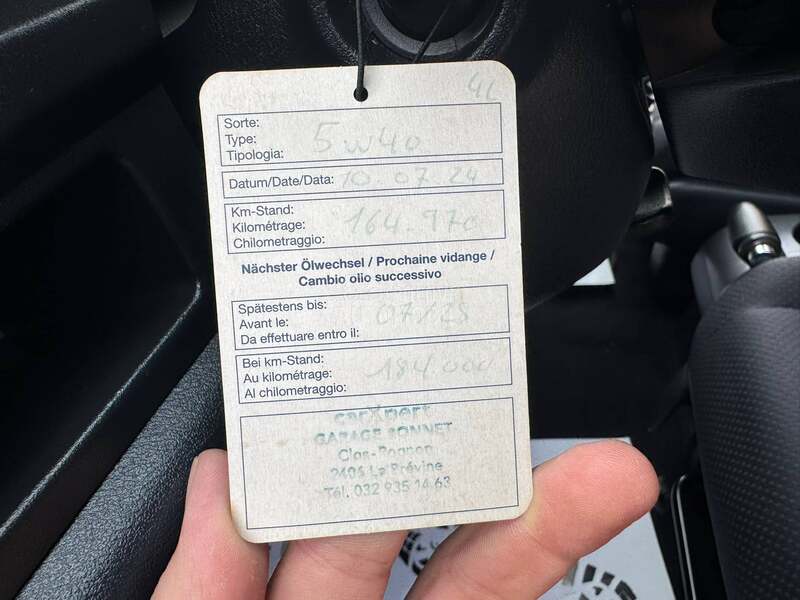 4L
Sorte:
Type: 5W40
Tipologia:
Datum/Date/Data: 10.07.24
Km-Stand:
Kilométrage: 164.970
Chilometraggio:
Nächster Ölwechsel / Prochaine vidange /
Cambio olio successivo
Spätestens bis:
Avant le: 07/25
Da effettuare entro il:
Bei km-Stand:
Au kilométrage: 184.000
Al chilometraggio:
carXpert
GARAGE BONNET
Clos-Rognon
2406 La Brévine
Tél. 032 935 14 63